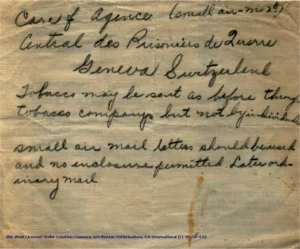 Care of Agence (small air-
Central des Prisoniers de Guerre
Geneva Switzerland
Tobacco may be sent as before through
tobacco companys but not by individuals
small air mail letters should be used
and no inclosure permitted Later ord-
inary mail
This Work is Licensed Under Creative Commons Attribution-NonCommercial 4.0 International (CC BY-NC 4.0).